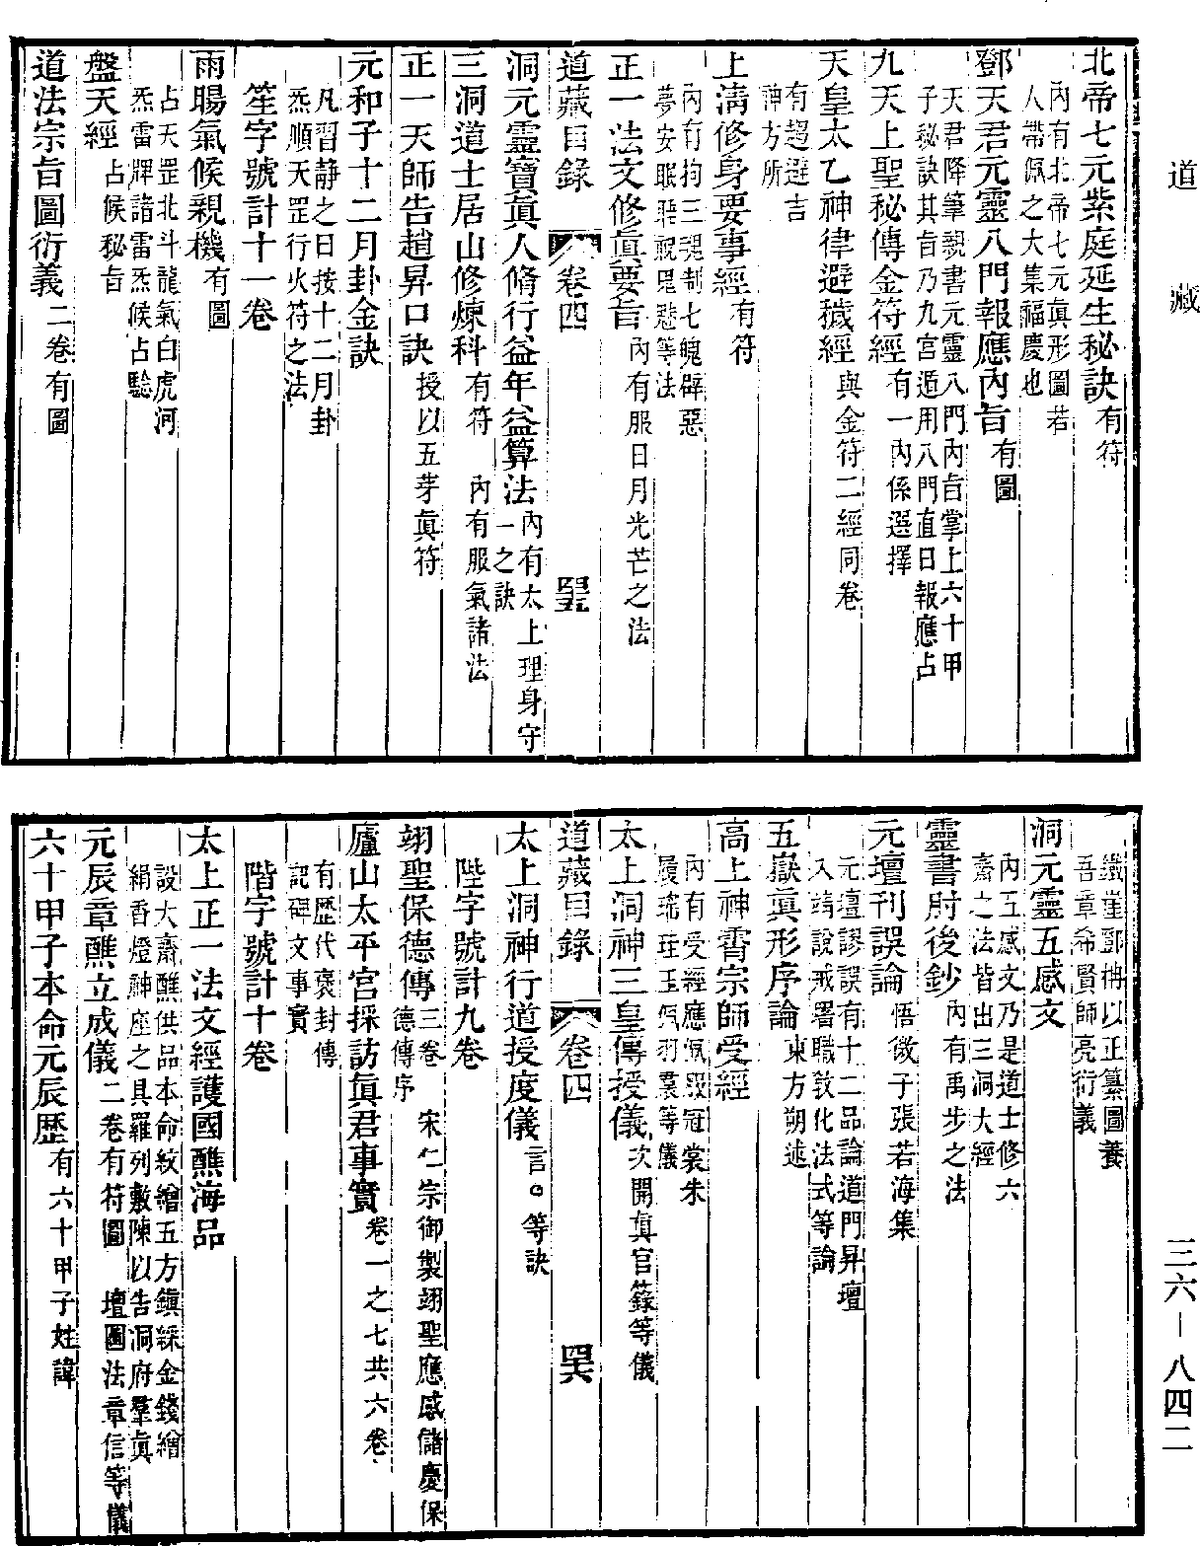 道藏
北帝七元紫庭延生秘訣有符
內有北帝七元眞形圖若
人帶佩之大集福慶也
鄧天君元靈八門報應內旨有圖
天君降筆親書元靈八門內旨掌上六十甲
子秘訣其旨乃九宮遁用八門直日報應占
九天上聖秘傳金符經有一內係選擇
天皇太乙神律避穢經與金符二經同卷
有超避吉
神方所
上淸修身要事經有符
內有拘三魂制七魄辟惡
夢安眠
正一法文修眞要旨內有服日月光芒之法
道藏目錄 卷四 
洞元靈寶眞人脩行益年益算法內有太上理身守
一之訣
三洞道士居山修煉科有符 內有服氣諸法
正一天師告趙昇口訣授以五芽眞符
元和子十二月卦金訣
凡習靜之日按十二月卦
炁順天罡行火符之法
笙字號計十一卷
雨暘氣候親機有圖
占天罡北斗龍氣白虎河
炁雷牌諸雷炁候占驗
盤天經占候秘旨
道法宗旨圖衍義二卷有圖
鐵崖鄧柟以正纂圖養
吾章希賢師亮衍義
洞元靈五感文
內五感文乃是道士修六
齋之法皆出三洞大經
靈書肘後鈔內有禹步之法
元壇刊誤論悟微子張若海集
元壇謬誤有十二品論道門昇壇
入靖說戒署職敎化法式等論
五嶽眞形序論東方朔述
高上神霄宗師受經
內有受經應佩
履瑞珪玉佩羽羣等儀
太上洞神三皇傳授儀次開眞官籙等儀
道藏目錄 卷四 
太上洞神行道授度儀言。等訣
陛字號計九卷
翊聖保德傳三卷 宋仁宗御製翊聖應感儲慶保
德傳序
廬山太平宮採訪眞君事實卷一之七共六卷
有歷代褒封傳
記碑文事實
階字號計十卷
太上正一法文經護國醮海品
設大齋醮供品本命紋繒五方鎭綵金錢繒
絹香燈神座之具羅列敷陳以告洞府羣眞
元辰章醮立成儀二卷有符圖 壇圖法章信等儀
六十甲子本命元辰歷有六十甲子姓諱
三六—八四二